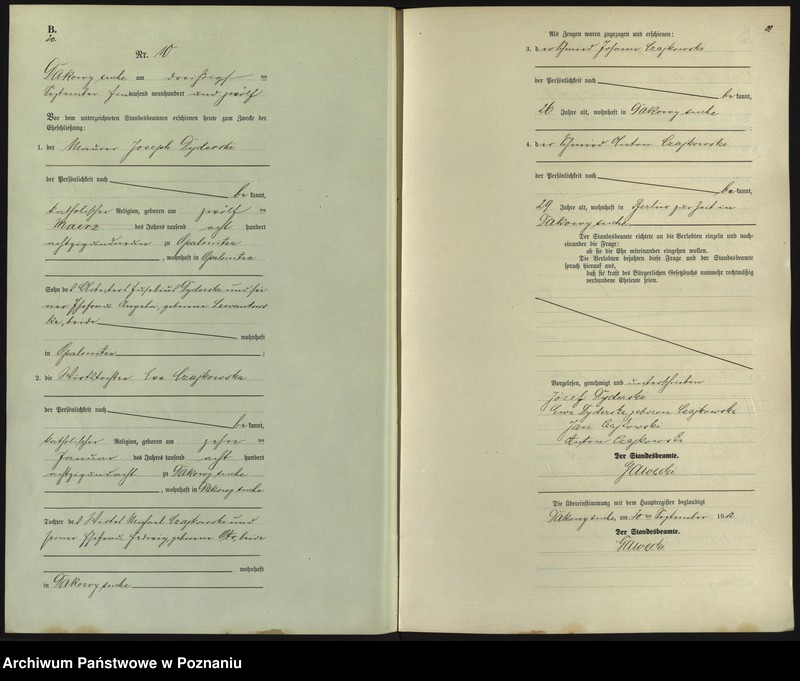 B.
20.
Nr. 10
Dakowy suche am dreißigsten
September eintausend neunhundert und zwölf
Vor dem unterzeichneten Standesbeamten erschienen heute zum Zwecke der
Eheschließung:
1. der Maurer Joseph Dyderski
der Persönlichkeit nach
be kannt,
katholischer Religion, geboren am zwölften
Maerz des Jahres tausend acht hundert
achtzigundneun zu Opalenitza
, wohnhaft in Opalenitza
Sohn des Arbeiters Eusebius Dyderski und sei-
ner Ehefrau Angela, geborene Lewandows-
ka, beide
wohnhaft
in Opalenitza ;
2. die Wirtstochter Eva Czajkowska
der Persönlichkeit nach
be kannt,
katholischer Religion, geboren am zehnten
Januar des Jahres tausend acht hundert
achtzigundacht zu Dakowy suche
, wohnhaft in Dakowy suche
Tochter des Wirtes Michael Czajkowski und
seiner Ehefrau Hedwig, geborene beide
wohnhaft
in Dakowy suche
21
Als Zeugen waren zugezogen und erschienen:
3. der Schmied Johann Czajkowski
der Persönlichkeit nach
be kannt,
26 Jahre alt, wohnhaft in Dakowy suche
;
4. der Schmied Anton Czajkowski
der Persönlichkeit nach
be kannt,
29 Jahre alt, wohnhaft in Berlin zur Zeit in
Dakowy suche
Der Standesbeamte richtete an die Verlobten einzeln und nach-
einander die Frage:
ob sie die Ehe miteinander eingehen wollen.
Die Verlobten bejahten diese Frage und der Standesbeamte
sprach hierauf aus,
daß sie kraft des Bürgerlichen Gesetzbuchs nunmehr rechtmäßig
verbundene Eheleute seien.
Vorgelesen, genehmigt und unterschrieben
Józef Dyderski
Ewa Dyderska geboren Czajkowska
Jan Czajkowski
Anton Czajkowski
Der Standesbeamte.
Die Übereinstimmung mit dem Hauptregister beglaubigt
Dakowy suche, am 30 ten September 1912
Der Standesbeamte.
Archiwum Państwowe w Poznaniu